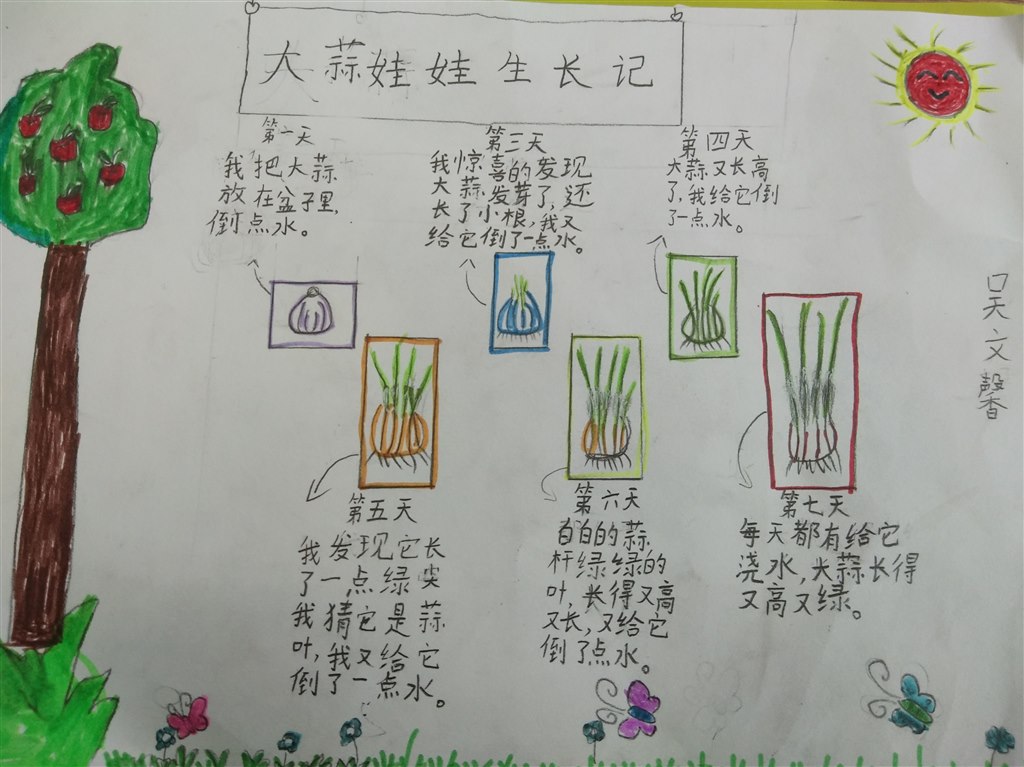 大蒜娃娃生长记
第一天
我把大蒜
放在盆子里,
倒点水。
第三天
我惊喜的发现
大蒜发芽了,还
长了小根,我又
给它倒了一点水。
第四天
大蒜又长高
了,我给它倒
了一点水。
口天文馨
第五天
我发现它长
了一点绿尖
我猜它是蒜
叶,我又给它
倒了一点水。
第六天
白白的蒜
杆绿绿的
叶,长得又高
又长,又给它
倒了点水。
第七天
每天都有给它
浇水,大蒜长得
又高又绿。